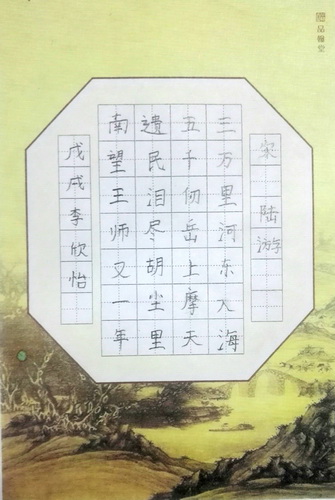 宋 陆游
三万里河东入海
五千仞岳上摩天
遗民泪尽胡尘里
南望王师又一年
戊戌李欣怡